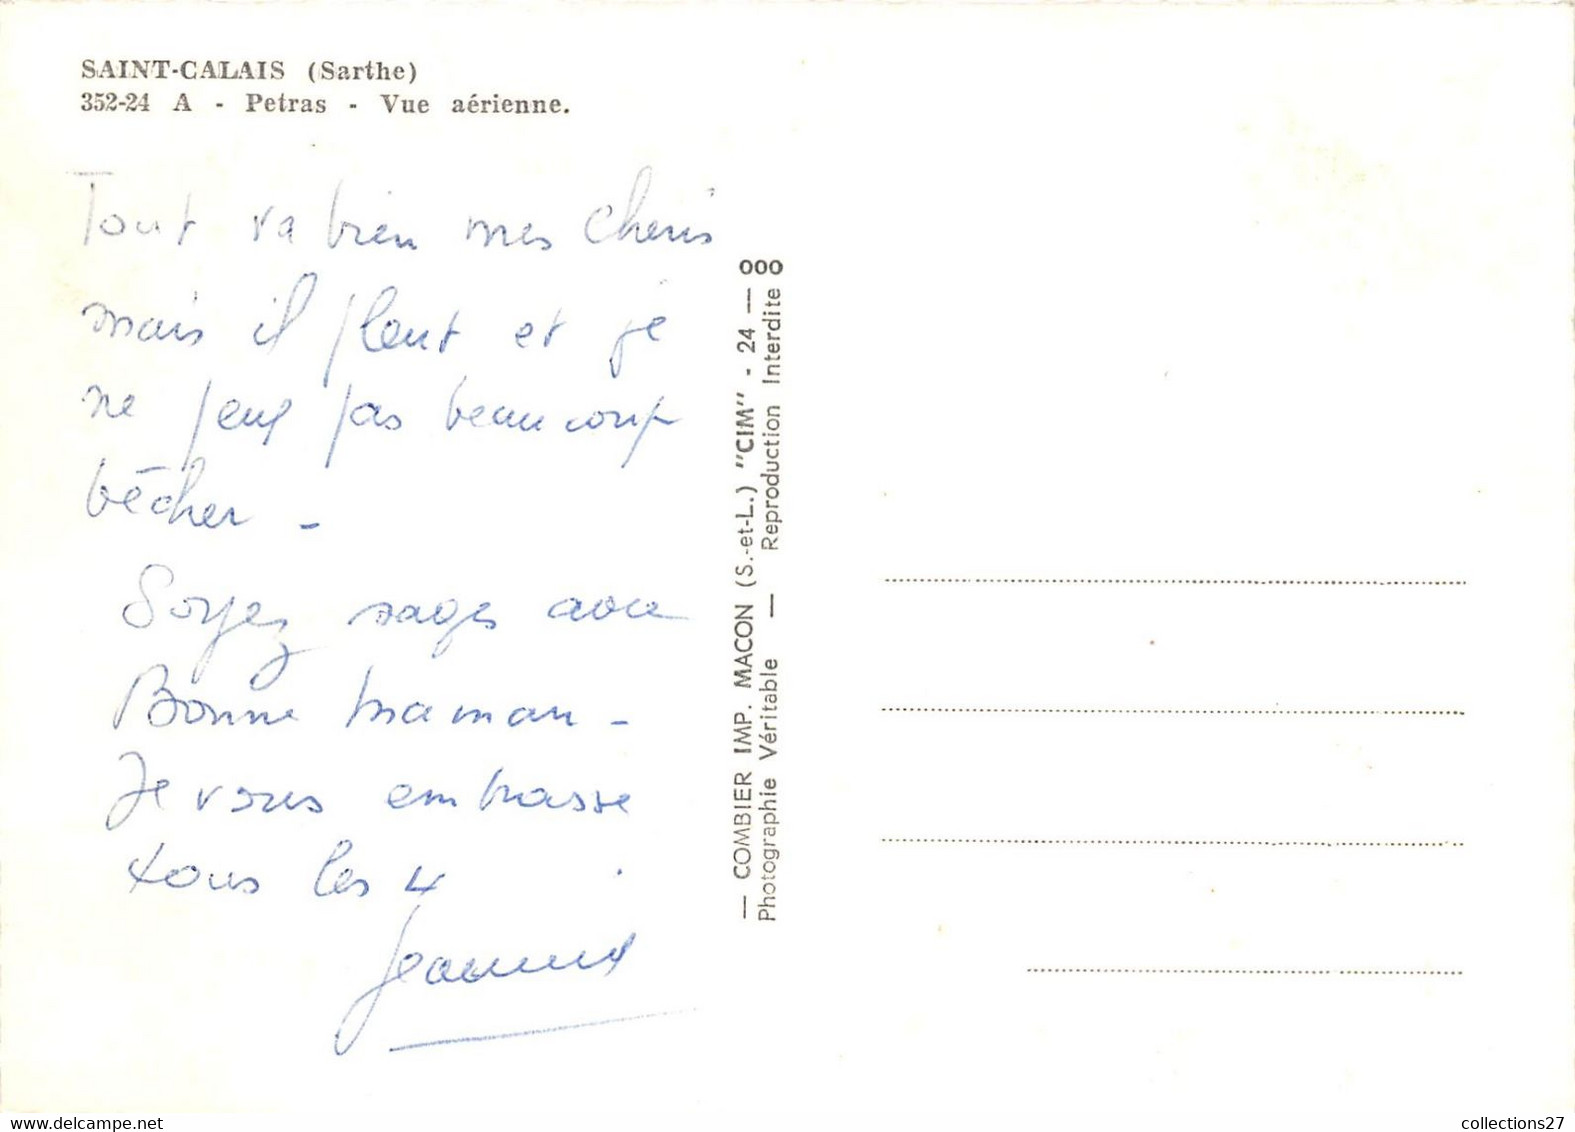 SAINT-CALAIS (Sarthe)
352-24 A - Petras - Vue aérienne.
Tout va bien mes cheris
mais il pleut et je
ne peux pas beaucoup
bêcher -
Soyez sages avec
Bonne maman -
Je vous embrasse
tous les 4
— COMBIER IMP. MACON (S.-et-L.) "CIM" - 24 — 000
Photographie Véritable — Reproduction Interdite
delcampe.net
collections27